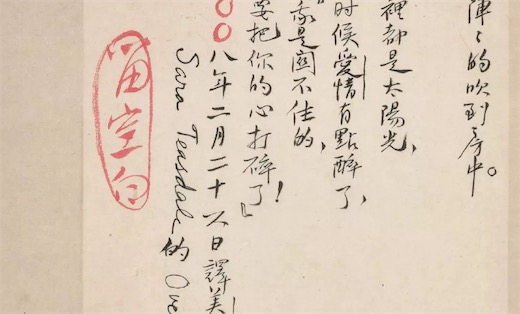 陣々的吹到房中。
裡都是太陽光、
时候愛情有點醉了、
我是関不住的、
要把你的心打碎了！』
八年二月二十六日譯美
Sara Teasdale 的 Ove
留空白